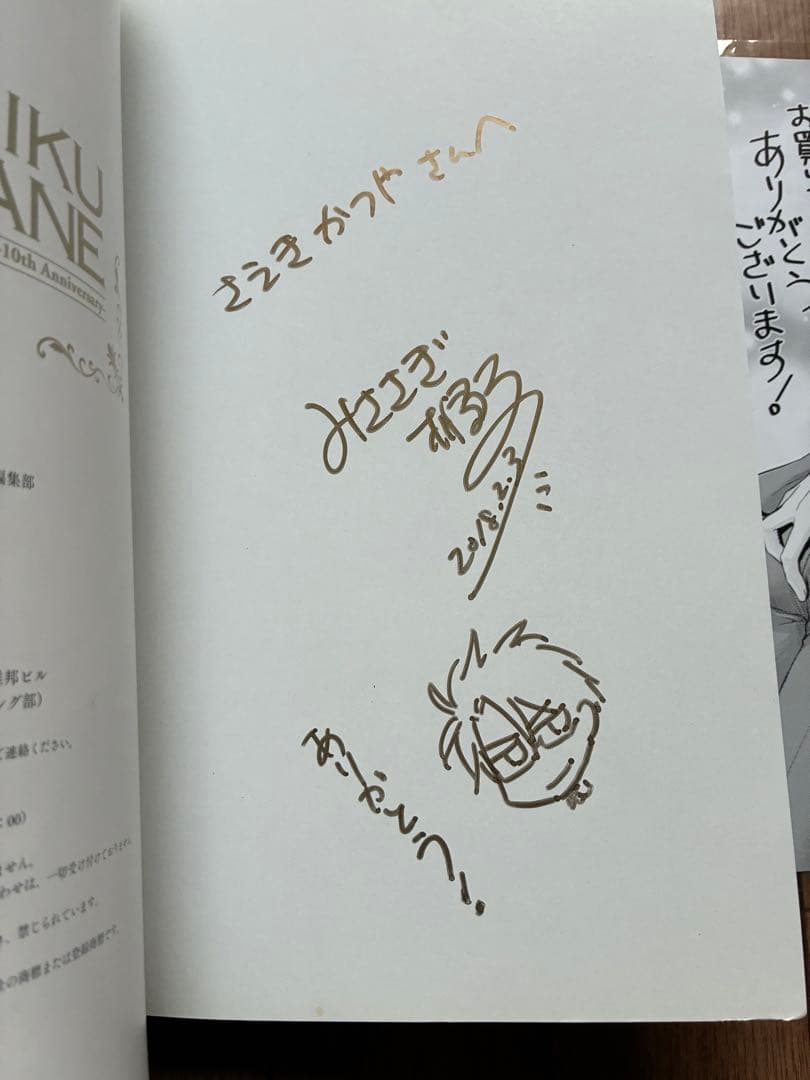 IKU
ANE
-10th Anniversary-
編集部
邦ビル
ング部)
ご連絡ください。
:00)
ません。
わせは、一切受け付けておりません
、禁じられています。
社の商標または登録商標です。
さえき かつや さんへ
みささぎ
2018.2.3
ありがとう!
お買い
ありがとう
ございます!